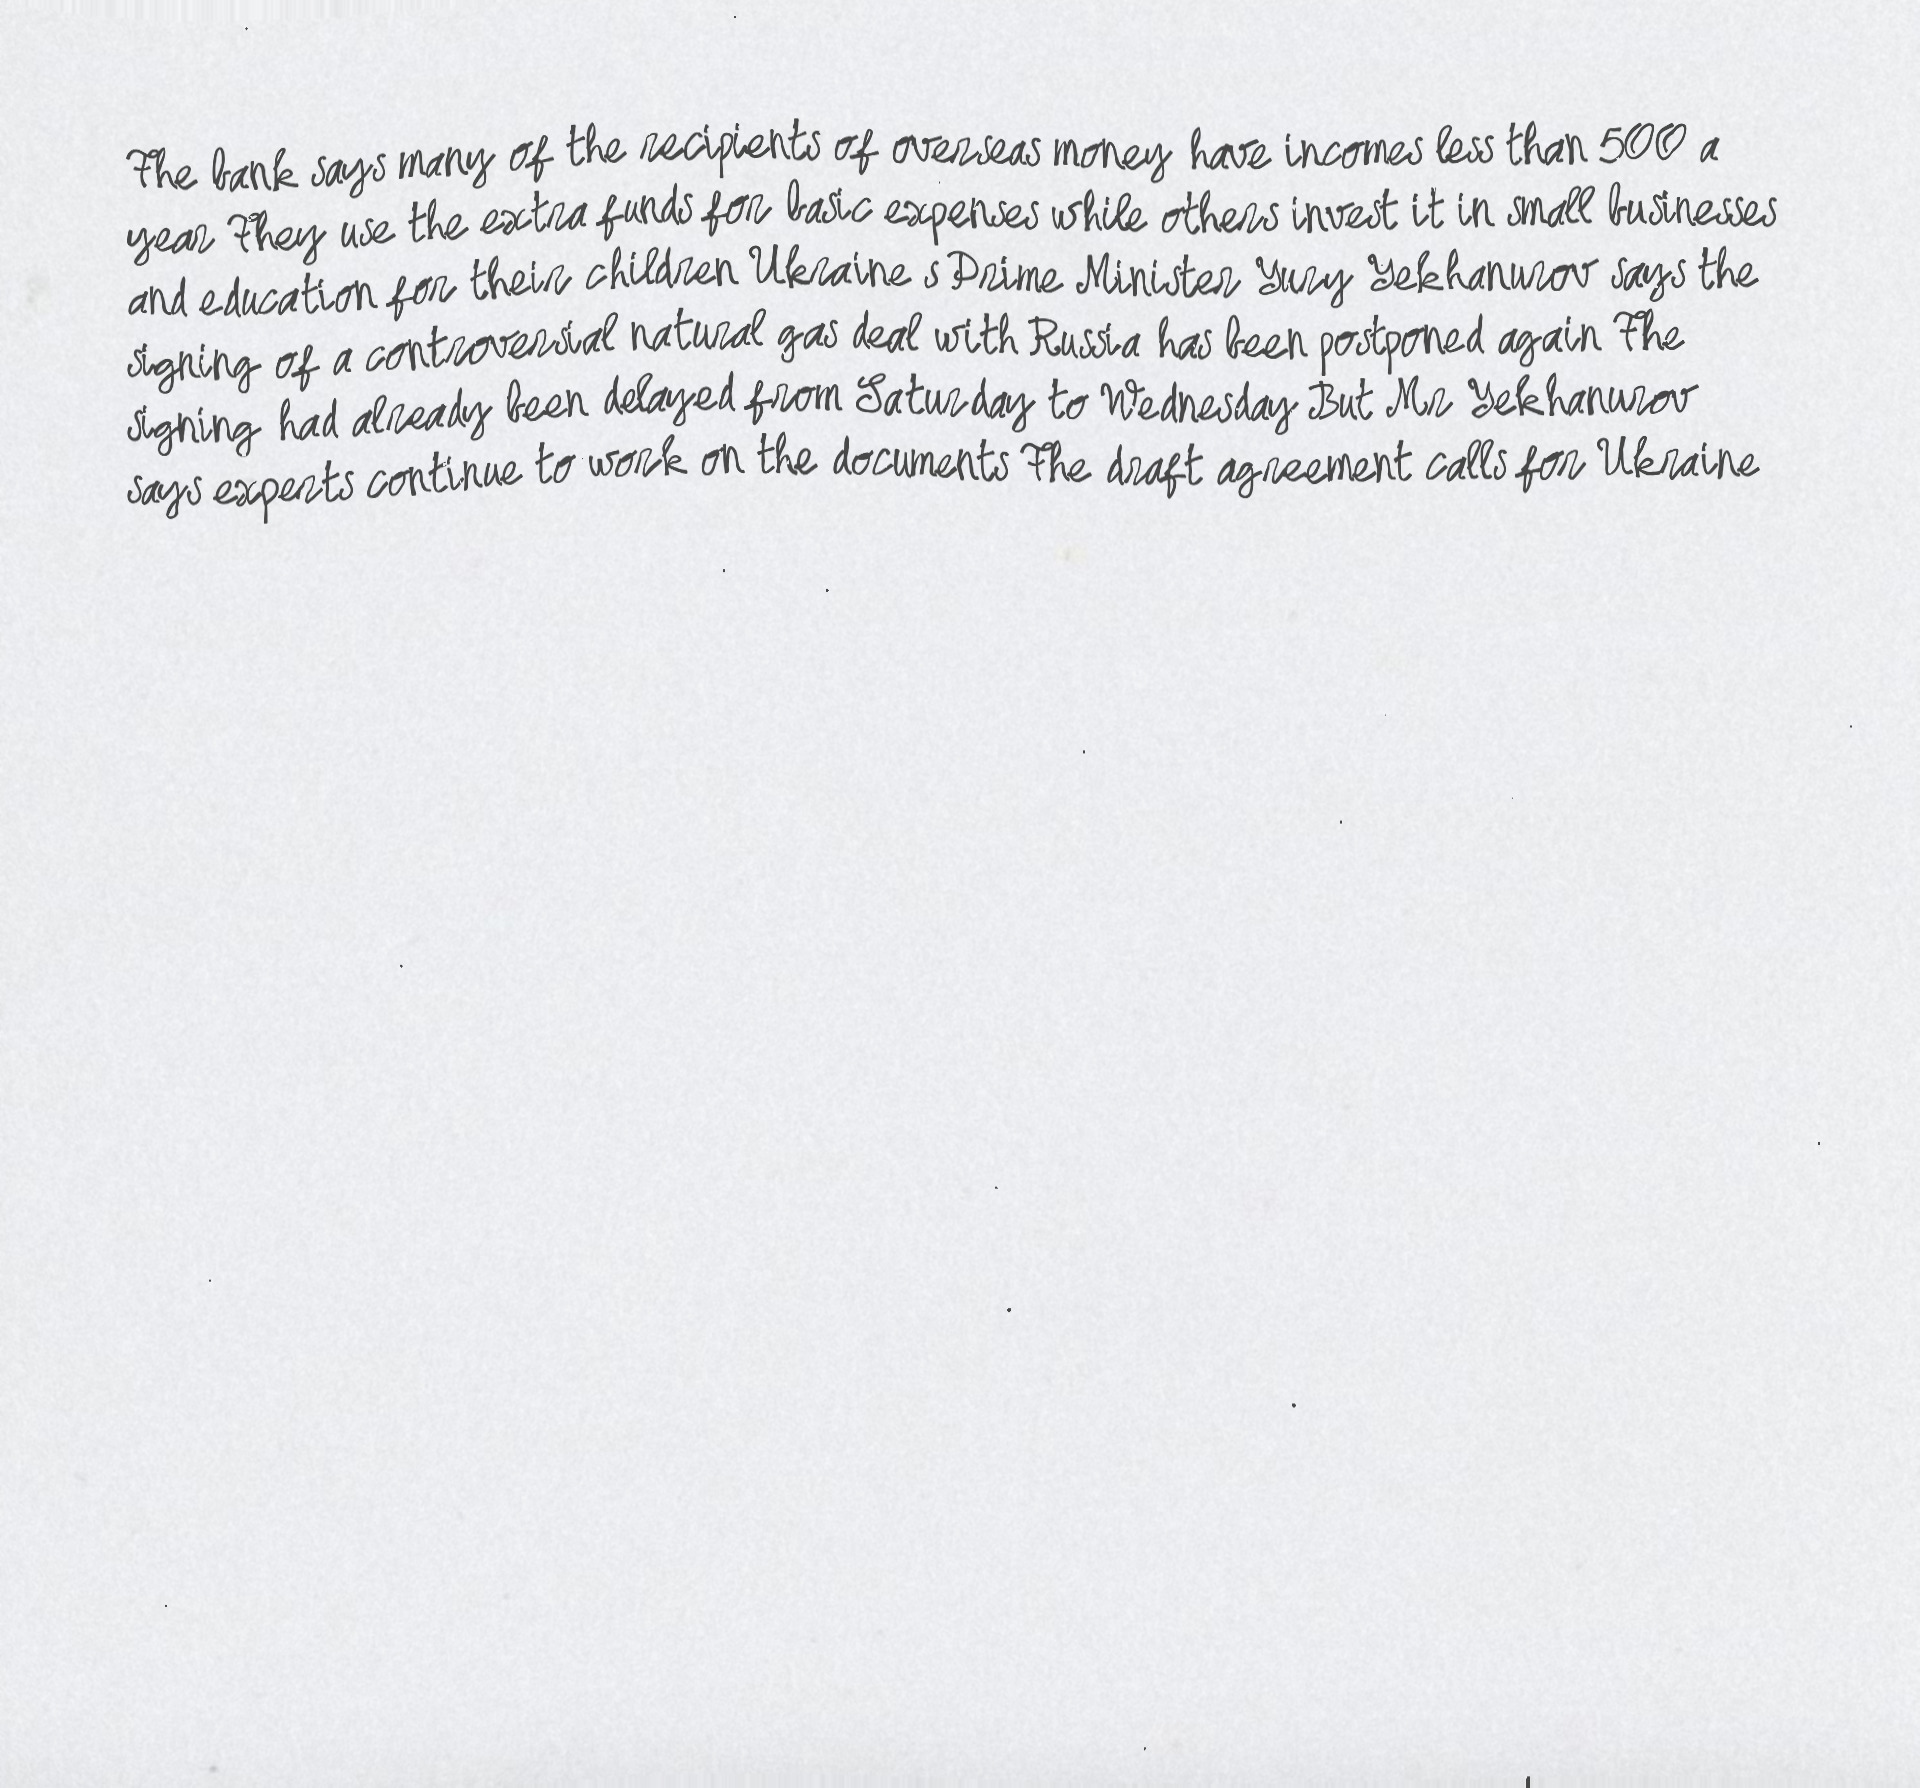 The bank says many of the recipients of overseas money have incomes less than 500 a
year They use the extra funds for basic expenses while others invest it in small businesses
and education for their children Ukraine s Prime Minister Yury Yekhanurov says the
signing of a controversial natural gas deal with Russia has been postponed again The
signing had already been delayed from Saturday to Wednesday But Mr Yekhanurov
says experts continue to work on the documents The draft agreement calls for Ukraine